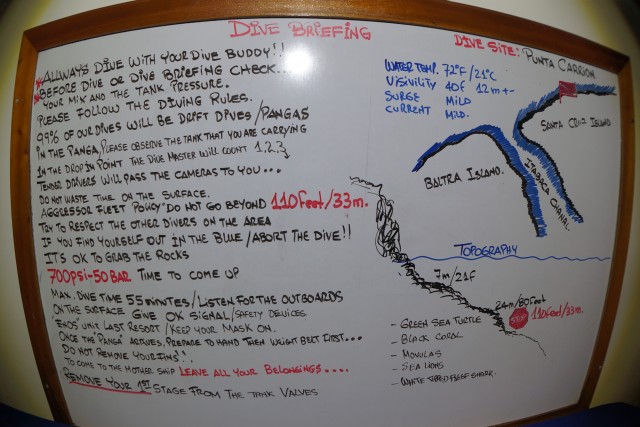 DIVE BRIEFING
ALLWAYS DIVE WITH YOUR DIVE BUDDY!!
BEFORE DIVE OR DIVE BRIEFING CHECK...
YOUR MIX AND THE TANK PRESSURE.
PLEASE FOLLOW THE DIVING RULES.
99% OF OUR DIVES WILL BE DRIFT DIVES/PANGAS
IN THE PANGA, PLEASE OBSERVE THE TANK THAT YOU ARE CARRYING
IN THE DROP IN POINT THE DIVE MASTER WILL COUNT 1,2,3
TENDER DRIVERS WILL PASS THE CAMERAS TO YOU...
DO NOT WASTE TIME ON THE SURFACE.
AGGRESSOR FLEET POLICY DO NOT GO BEYOND 110 Feet/33m.
TRY TO RESPECT THE OTHER DIVERS ON THE AREA
IF YOU FIND YOURSELF OUT IN THE BLUE/ABORT THE DIVE!!
IT'S OK TO GRAB THE ROCKS
700psi-50 BAR TIME TO COME UP
MAX. DIVE TIME 55 MINUTES/LISTEN FOR THE OUTBOARDS
ON THE SURFACE GIVE OK SIGNAL/SAFETY DEVICES
UNIT LAST RESORT/KEEP YOUR MASK ON.
ONCE THE PANGA ARRIVES, PREPARE TO HAND THEM WEIGHT BELT FIRST...
DO NOT REMOVE YOUR FINS!!
TO COME TO THE MOTHER SHIP LEAVE ALL YOUR BELONGINGS....
REMOVE YOUR 1ST STAGE FROM THE TANK VALVES
DIVE SITE: PUNTA CARRION
WATER TEMP. 72°F/21°C
VISIVILITY 40f 12m+-
SURGE MILD
CURRENT MILD.
SANTA CRUZ ISLAND
BALTRA ISLAND.
ITABACA CHANAL
TOPOGRAPHY
7m/21F
24m/80feet
STOP
110feet/33m.
- GREEN SEA TURTLE
- BLACK CORAL
- MOVULAS
- SEA LIONS
- WHITE TIP REEF SHARK.